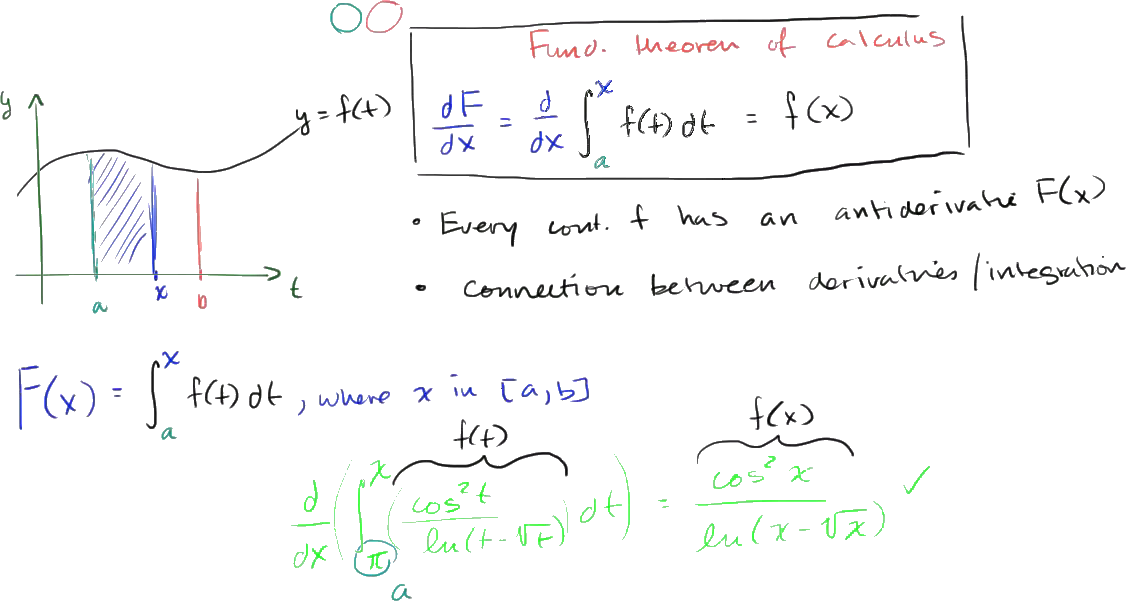 Fund. theorem of calculus
y
y = f(t)
dF/dx = d/dx ∫_a^x f(t) dt = f(x)
• Every cont. f has an antiderivative F(x)
a x b t
• connection between derivatives/integration
F(x) = ∫_a^x f(t) dt, where x in [a,b]
f(t) f(x)
d/dx (∫_π^x (cos² t / ln(t-√t)) dt) = cos² x / ln(x-√x) ✓
a